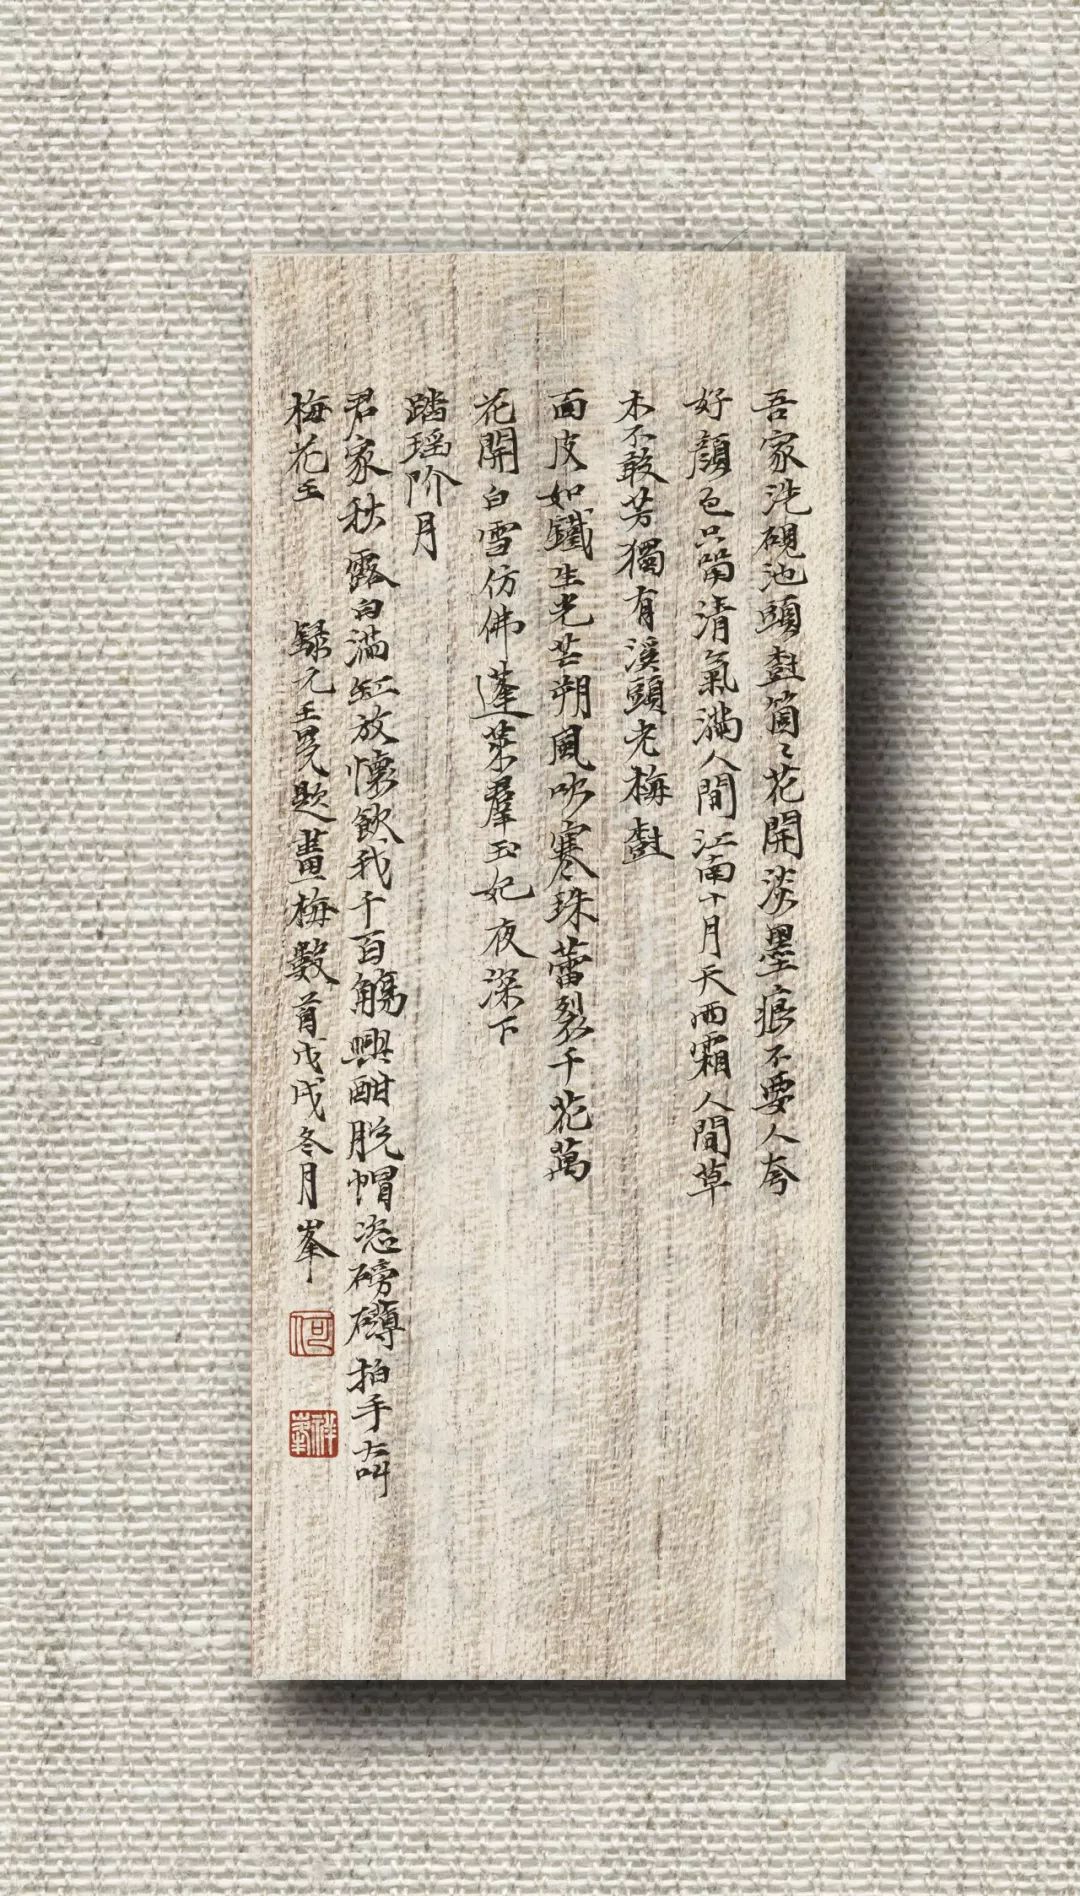 吾家洗硯池頭樹箇〻花開淡墨痕不要人夸
好顏色只留清氣滿人間江南十月天雨霜人間草
木不敢芳獨有溪頭老梅樹
面皮如鐵生光芒朔風吹寒珠蕾裂千花萬
花開白雪仿佛蓬萊群玉妃夜深下
踏瑶阶月
君家秋露白滿缸放懷飲我千百觴興酣脫帽恣磅礴拍手大叫
梅花王 錄元王冕題畫梅數首戊戌冬月峯
何
祥峯